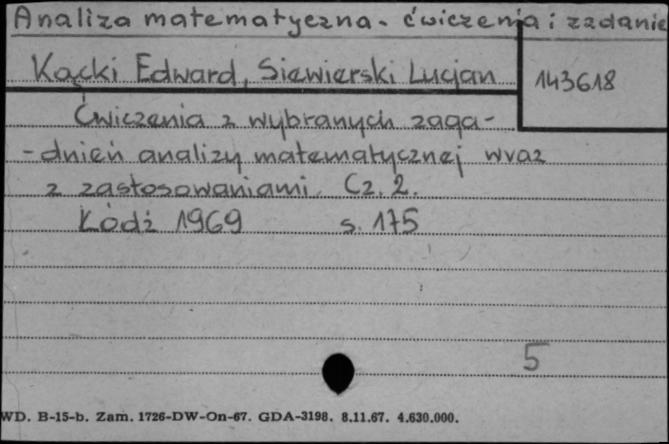 Analiza matematyczna - ćwiczenia i zadanie
Kącki Edward, Siewierski Lucjan
143618
Ćwiczenia z wybranych zaga-
-dnień analizy matematycznej wraz
z zastosowaniami. Cz. 2.
Łódź 1969 s. 175
5
WD. B-15-b. Zam. 1726-DW-On-67. GDA-3198. 8.11.67. 4.630.000.